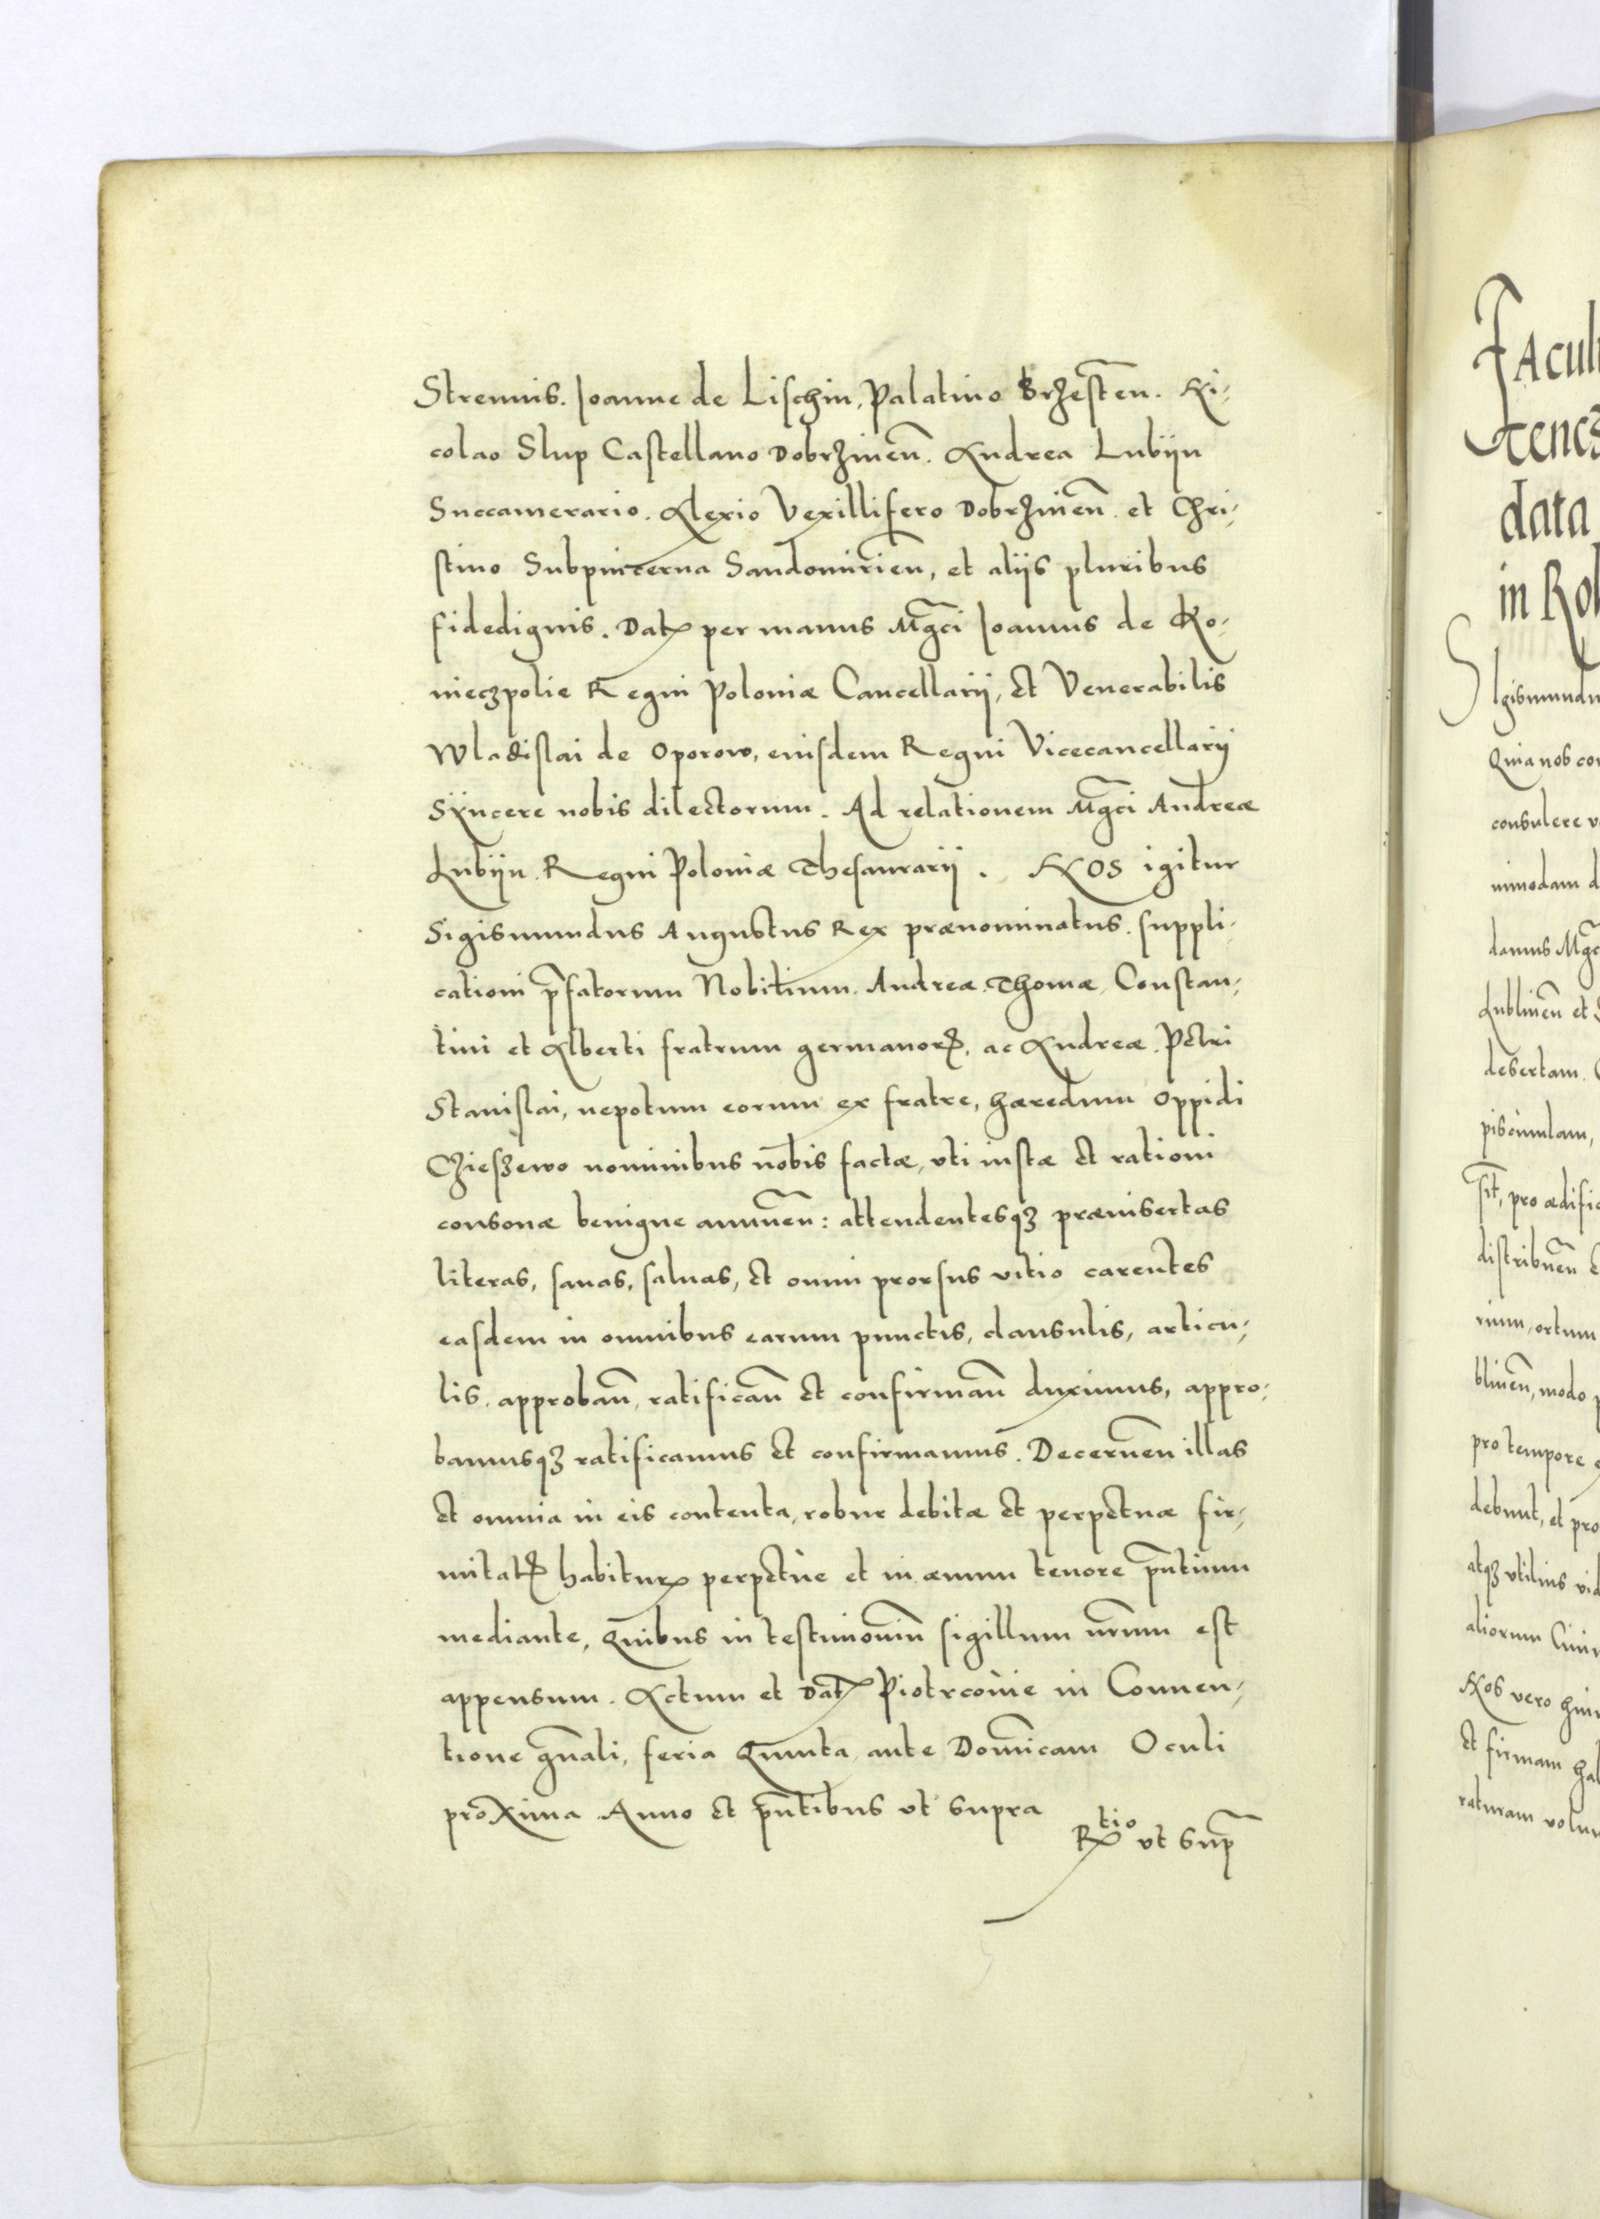 Strennis. Ioanne de Lischin, Palatino Brzesten̄. Ni-
colao Slup Castellano Dobrzinen̄. Andrea Lubijn
Succamerario. Alexio Vexillifero Dobrzinen̄. et Chri-
stino Subpincerna Sandomirien̄, et aliis pluribus
fidedignis. Dat. per manus Mgc̄i Ioannis de Ko-
nieczpolie Regni Poloniæ Cancellarij, et Venerabilis
Wladislai de Oporow, eiusdem Regni Vicecancellarij
Sÿncere nobis dilectorum. Ad relationem Mgc̄i Andreæ
Lubijn. Regni Poloniæ Thesaurarij. NOS igitur
Sigismundus Augustus Rex prænominatus. suppli-
cationi p̄fatorum Nobilium. Andreæ. Thomæ, Constan-
tini et Alberti fratrum germanorꝝ, ac Andreæ. Petri
Stanislai, nepotum eorum ex fratre, hæredum Oppidi
Czieszewo nominibus nobis factæ, vti iustæ et rationi
consonæ benigne annuen̄: attendentesqꝫ præinsertas
literas, sanas, saluas, et omni prorsus vitio carentes
easdem in omnibus earum punctis, clausulis, articu-
lis, approban̄, ratifican̄ et confirman̄ duximus, appro-
bamusqꝫ ratificamus et confirmamus. Decernen̄ illas
et omnia in eis contenta, robur debitæ et perpetuæ fir-
mitatꝭ habitur. perpetùe et in æuum tenore pn̄tium
mediante, Quibus in testimoniū sigillum nr̄um est
appensum. Actum et Dat. Piotrcoùie in Conuen-
tione gn̄ali, feria Quinta, ante Dom̄icam Oculi
proxima Anno et pn̄tibus vt supra
Rtio vt sup̄
Facul
tencz
data
in Rol
SIgismundu
Quia nob con
consulere v
nimodam d
damus Mgc̄
Lublinen̄ et S
desertam.
piscinulam,
sit, pro ædific
distribuen̄
rium, ortum
blinen̄, modo p
pro tempore e
debunt, et pro
atqꝫ vtilius vid
aliorum Ciui
Nos vero hui
et firmam hab
raturam volu